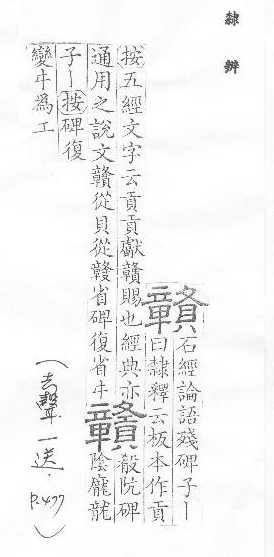 隸辨
贛
石經論語殘碑子丨
曰隸釋云板本作貢
按五經文字云貢貢獻贛賜也經典亦
通用之說文贛從貝從竷省碑復省㐄
贛
殽阬碑
陰龐龍
子丨按碑復
變㐄為工
(去聲一送. P.477)